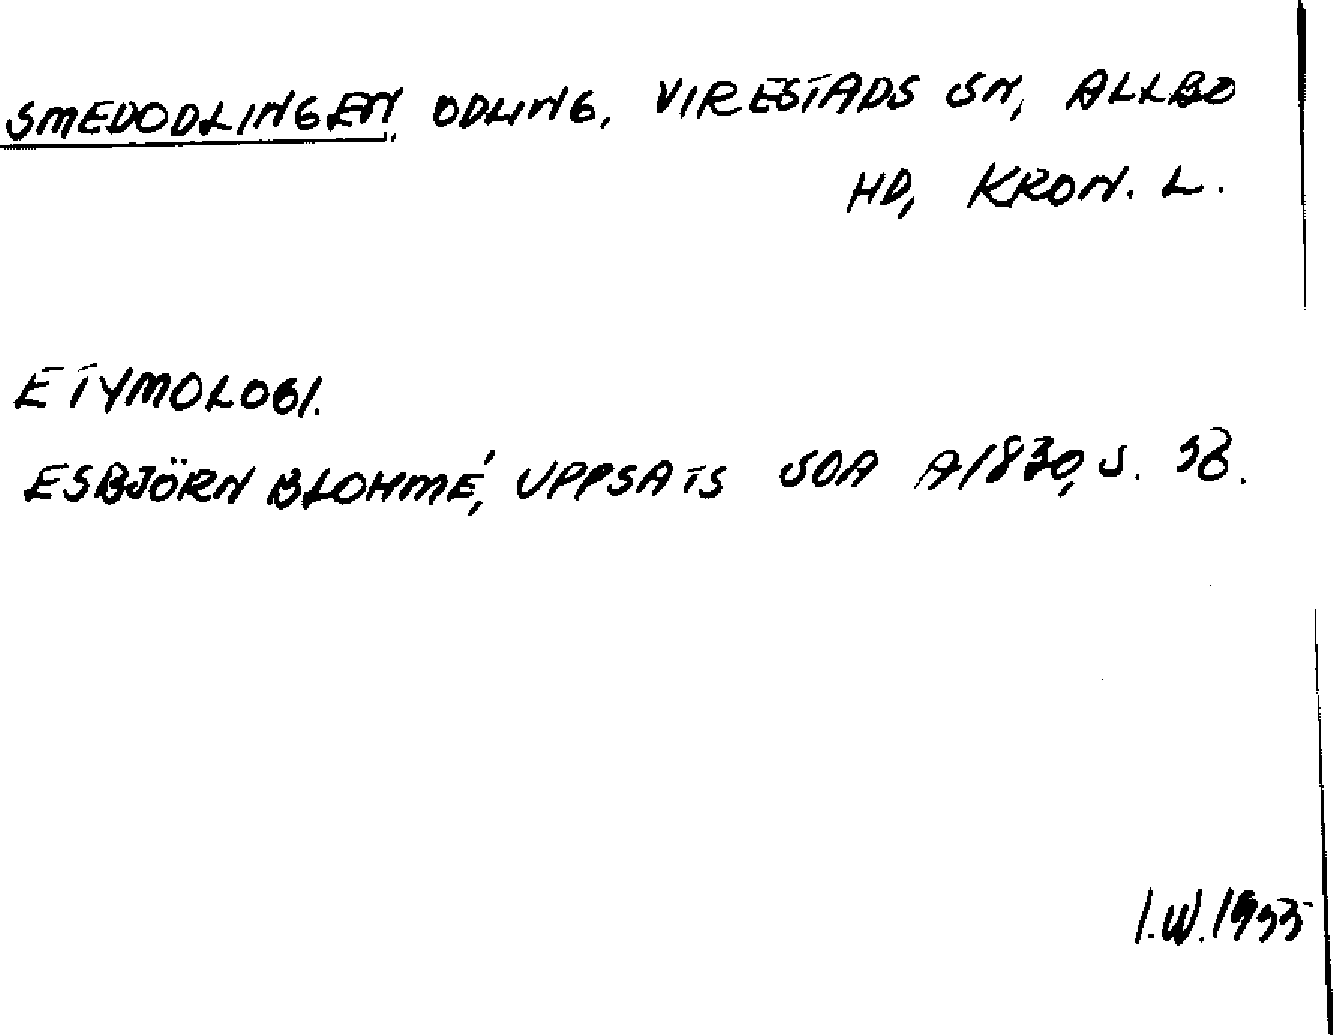 SMEDODLINGEN, ODLING, VIRESTADS SN, ALLBO
HD, KRON. L.
ETYMOLOGI.
ESBJÖRN BLOHMÉ, UPPSATS SOA A1830, S. 38.
I.W. 1955